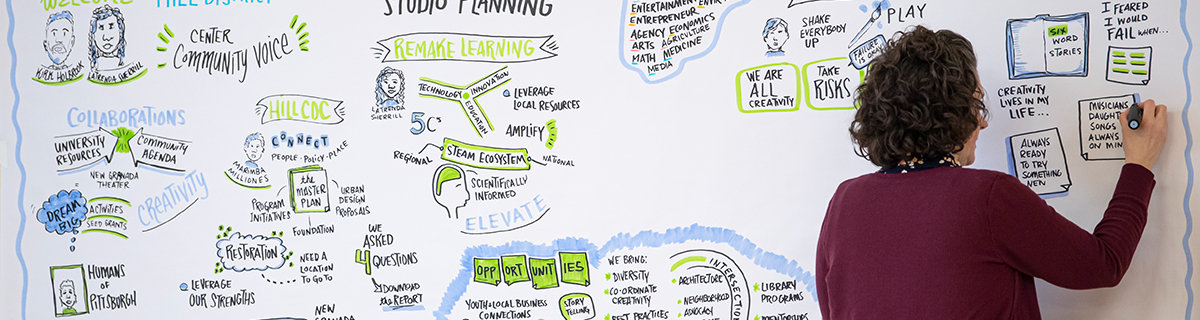 WELCOME
HILL DISTRICT
KIRK HOLBROOK
LATRENDA SHERRILL
CENTER
COMMUNITY VOICE
COLLABORATIONS
UNIVERSITY
RESOURCES
COMMUNITY
AGENDA
NEW GRANADA
THEATER
DREAM
BIG
ACTIVITIES
SEED GRANTS
CREATIVITY
HUMANS
OF
PITTSBURGH
HILL CDC
CONNECT
PEOPLE · POLICY · PLACE
MARIMBA
MILLIONES
the
MASTER
PLAN
PROGRAM
INITIATIVES
URBAN
DESIGN
PROPOSALS
FOUNDATION
RESTORATION
NEED A
LOCATION
TO GO TO
LEVERAGE
OUR STRENGTHS
WE
ASKED
4 QUESTIONS
DOWNLOAD
the REPORT
NEW
GRANADA
STUDIO PLANNING
REMAKE LEARNING
LATRENDA
SHERRILL
TECHNOLOGY
INNOVATION
EDUCATION
LEVERAGE
LOCAL RESOURCES
5 C's
AMPLIFY
REGIONAL
STEAM ECOSYSTEM
NATIONAL
SCIENTIFICALLY
INFORMED
ELEVATE
OPPORTUNITIES
YOUTH & LOCAL BUSINESS
CONNECTIONS
STORY
TELLING
WE BRING:
DIVERSITY
CO-ORDINATE
CREATIVITY
BEST PRACTICES
INTERSECTION
ARCHITECTURE
NEIGHBORHOOD
ADVOCACY
LIBRARY
PROGRAMS
MENTORSHIPS
ENTERTAINMENT
ENTREPRENEUR
AGENCY ECONOMICS
ARTS AGRICULTURE
MATH MEDICINE
MEDIA
SHAKE
EVERYBODY
UP
PLAY
FAILURE
IS OKAY
WE ARE
ALL
CREATIVITY
TAKE
RISKS
SIX
WORD
STORIES
I FEARED
I WOULD
FAIL WHEN...
CREATIVITY
LIVES IN MY
LIFE...
MUSICIANS
DAUGHT
SONGS
ALWAYS
ON MIN
ALWAYS
READY
TO TRY
SOMETHING
NEW